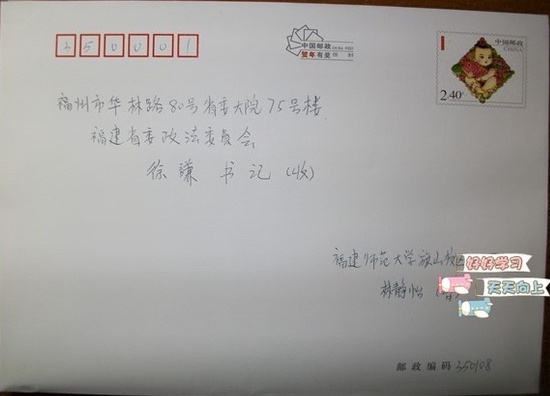 350001
中国邮政
CHINA POST
贺年有奖信封
中国邮政
CHINA
2.40元
福州市华林路80号省委大院75号楼
福建省委政法委员会
徐谦 书记 (收)
福建师范大学旗山校区
好好学习
林静怡
天天向上
邮政编码 350108